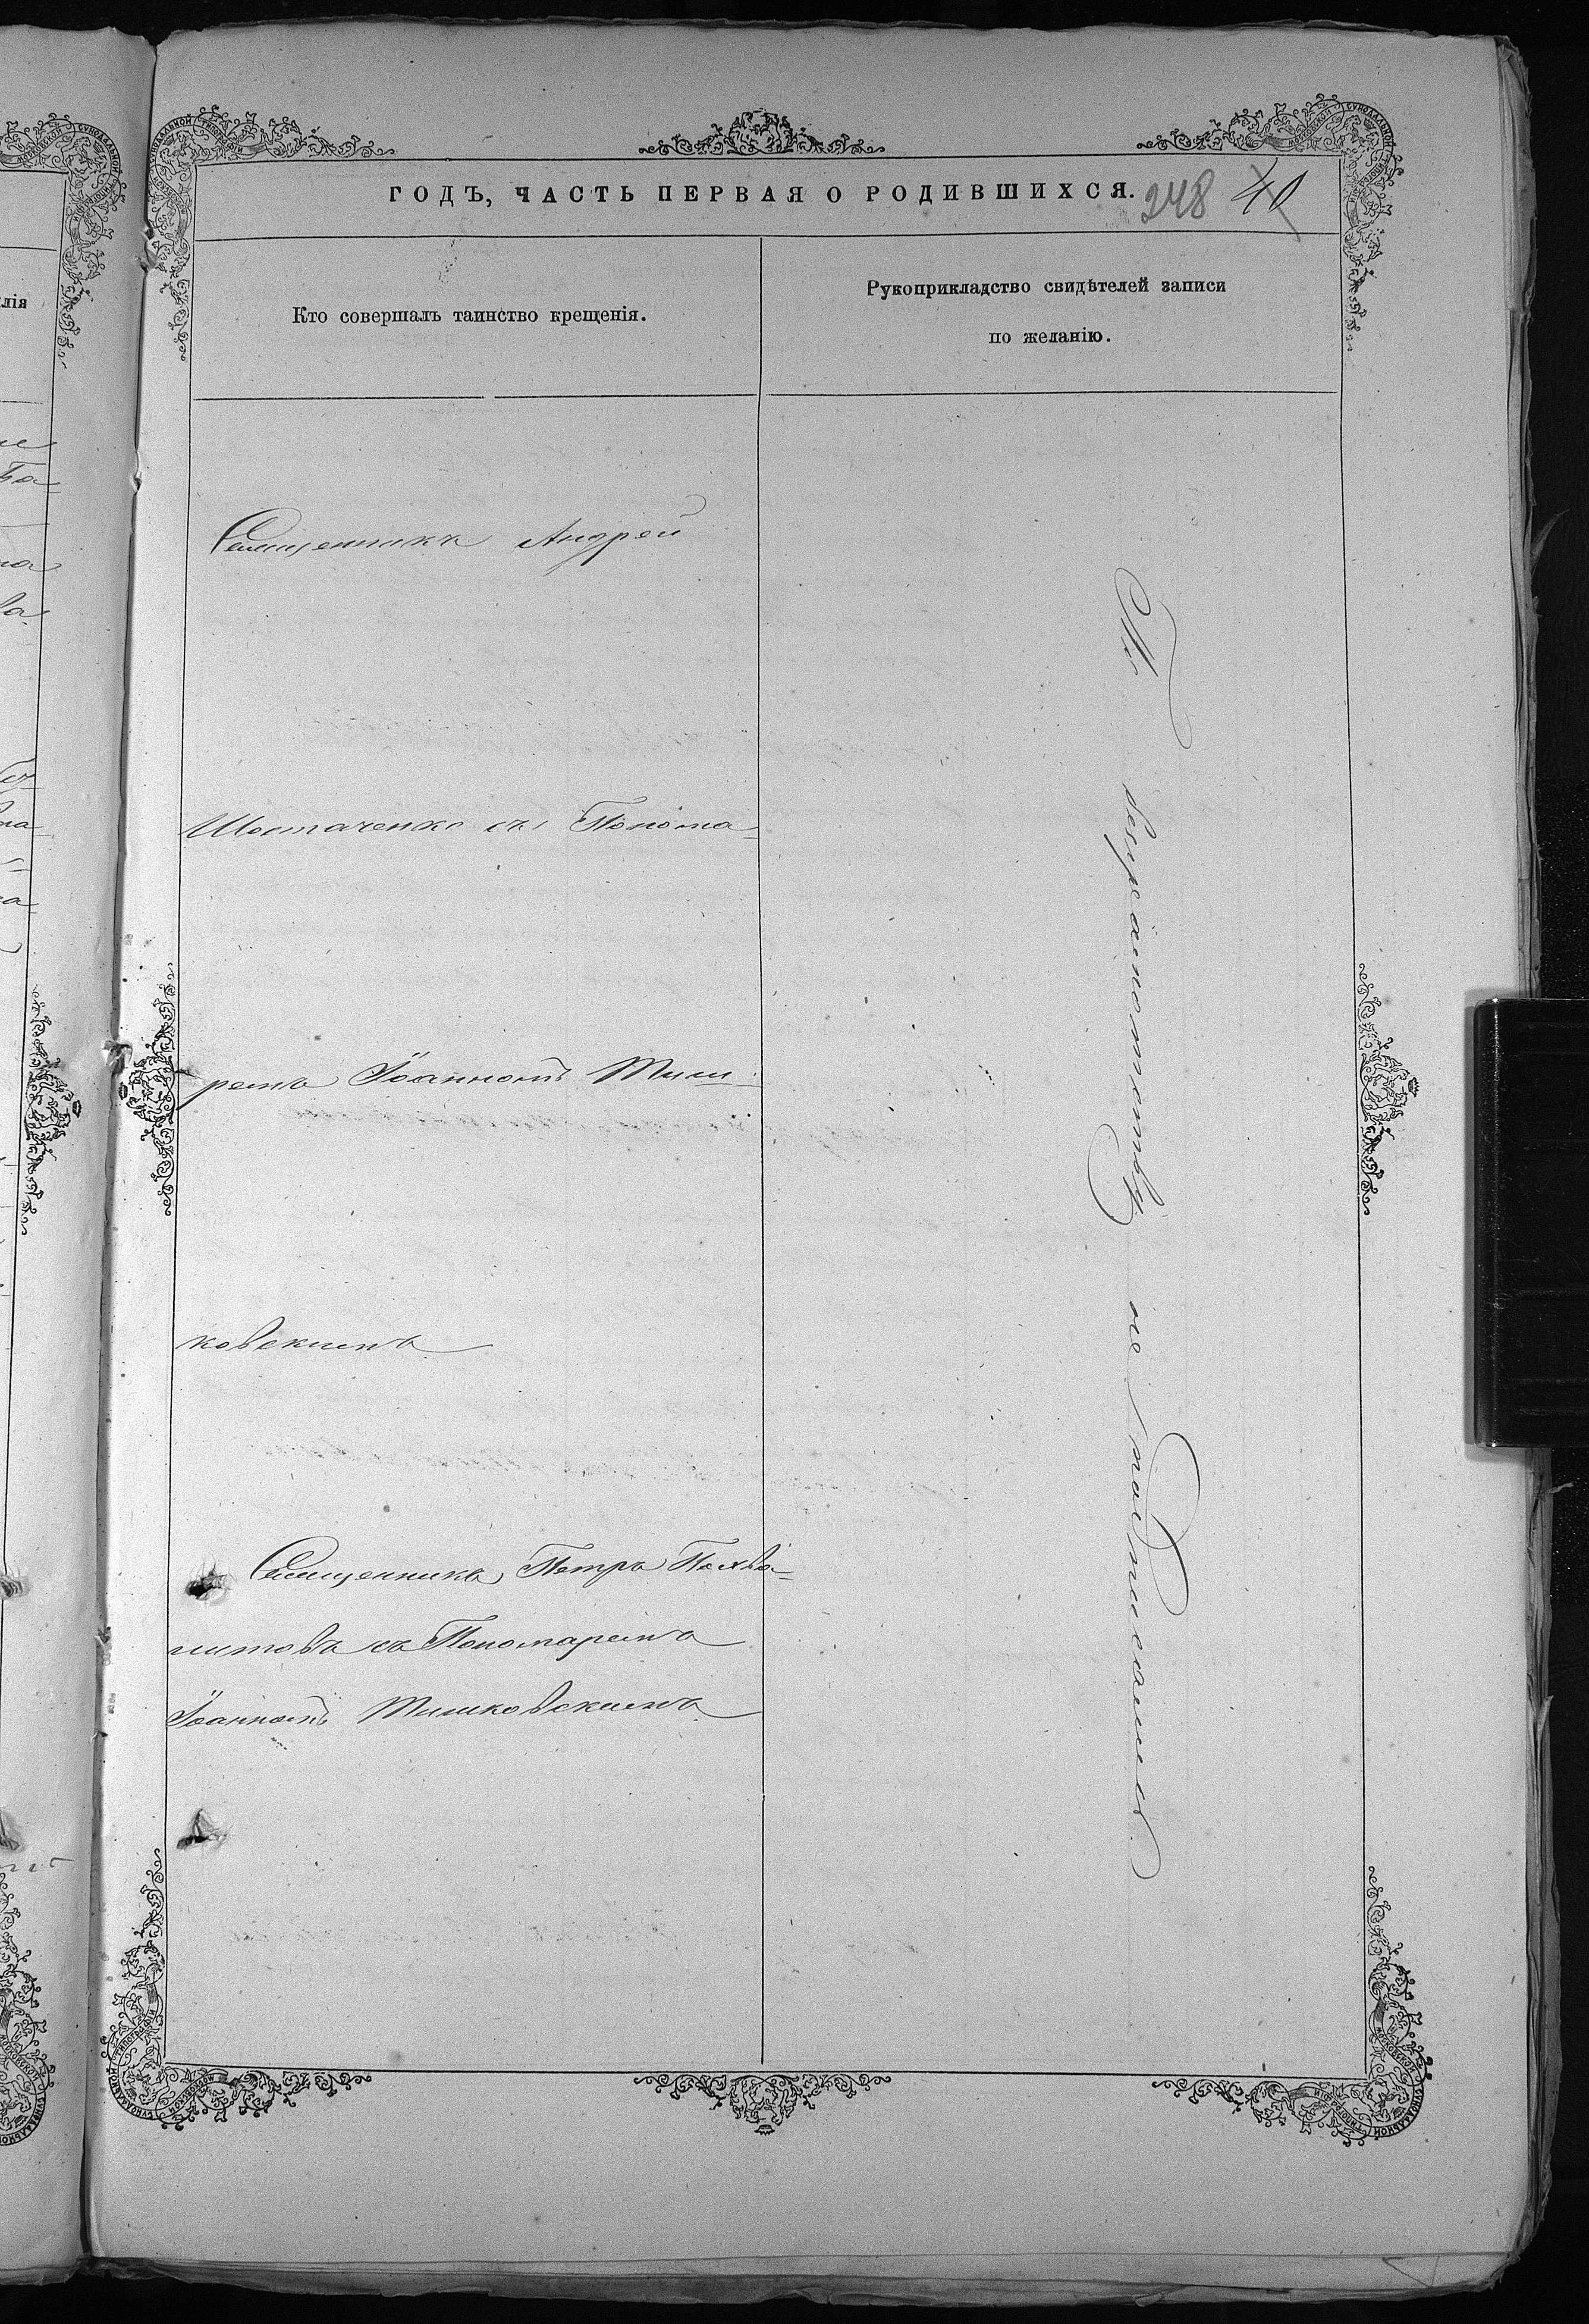 ГОДЪ, ЧАСТЬ ПЕРВАЯ О РОДИВШИХСЯ. 248 40
лія
Кто совершалъ таинство крещенія.
Рукоприкладство свидѣтелей записи
по желанію.
Священникъ Андрей
съ Понома-
ремъ Іоанномъ Тиш-
ковскимъ
Священникъ Петръ
съ Пономаремъ
Іоанномъ Тишковскимъ
По безграмотству не подписались